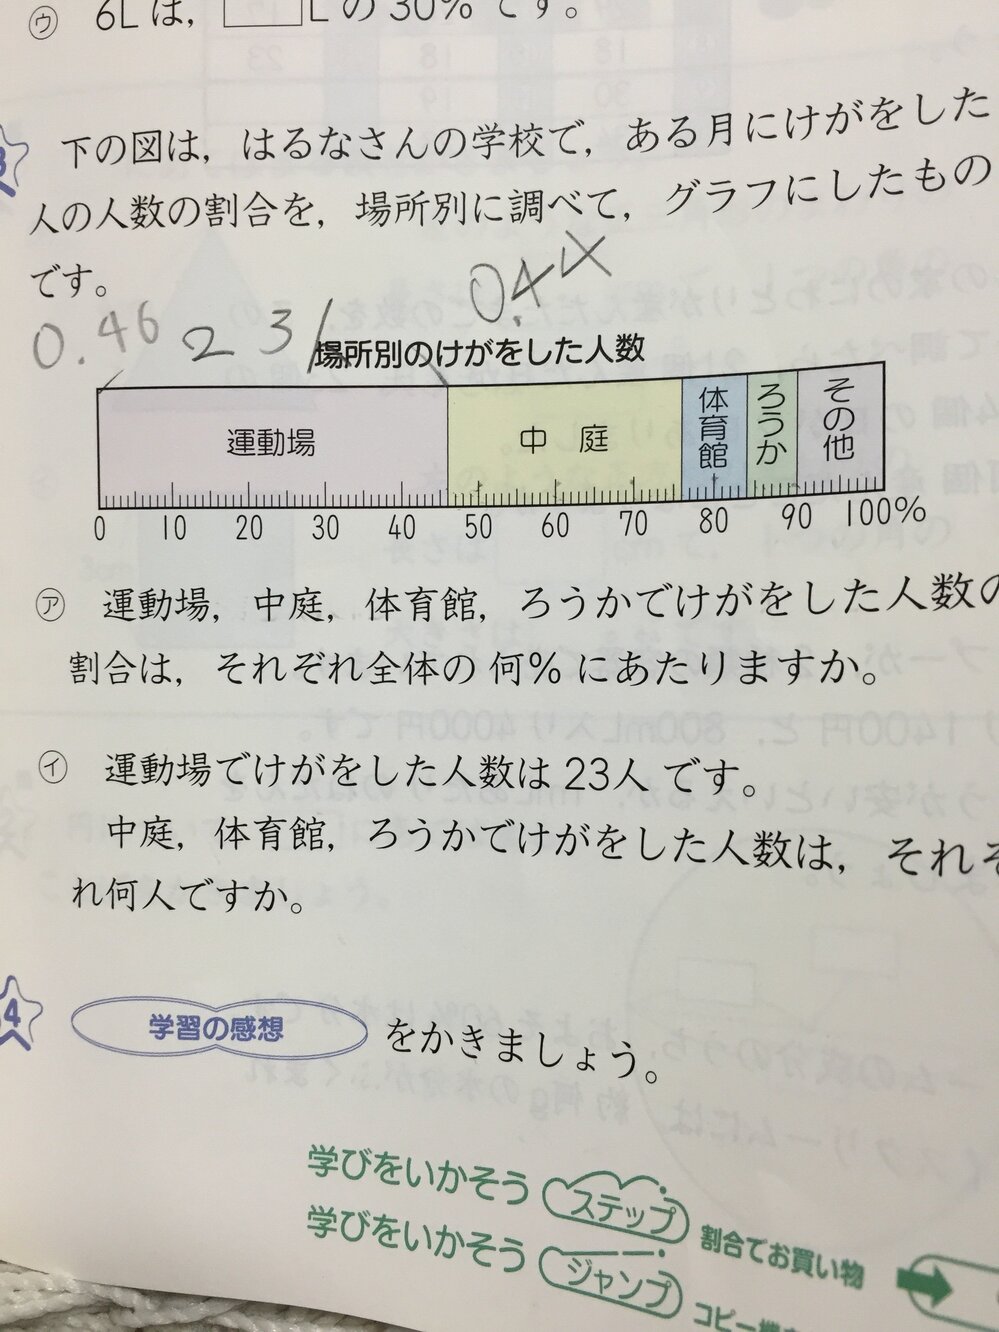 ㋒ 6Lは，□Lの30%です。
3 下の図は，はるなさんの学校で，ある月にけがをした
人の人数の割合を，場所別に調べて，グラフにしたもの
です。
0.46 23 0.4
場所別のけがをした人数
運動場 中庭 体育館 ろうか その他
0 10 20 30 40 50 60 70 80 90 100%
㋐ 運動場，中庭，体育館，ろうかでけがをした人数の
割合は，それぞれ全体の何%にあたりますか。
㋑ 運動場でけがをした人数は23人です。
中庭，体育館，ろうかでけがをした人数は，それぞ
れ何人ですか。
4 学習の感想 をかきましょう。
学びをいかそう ステップ 割合でお買い物
学びをいかそう ジャンプ コピー機